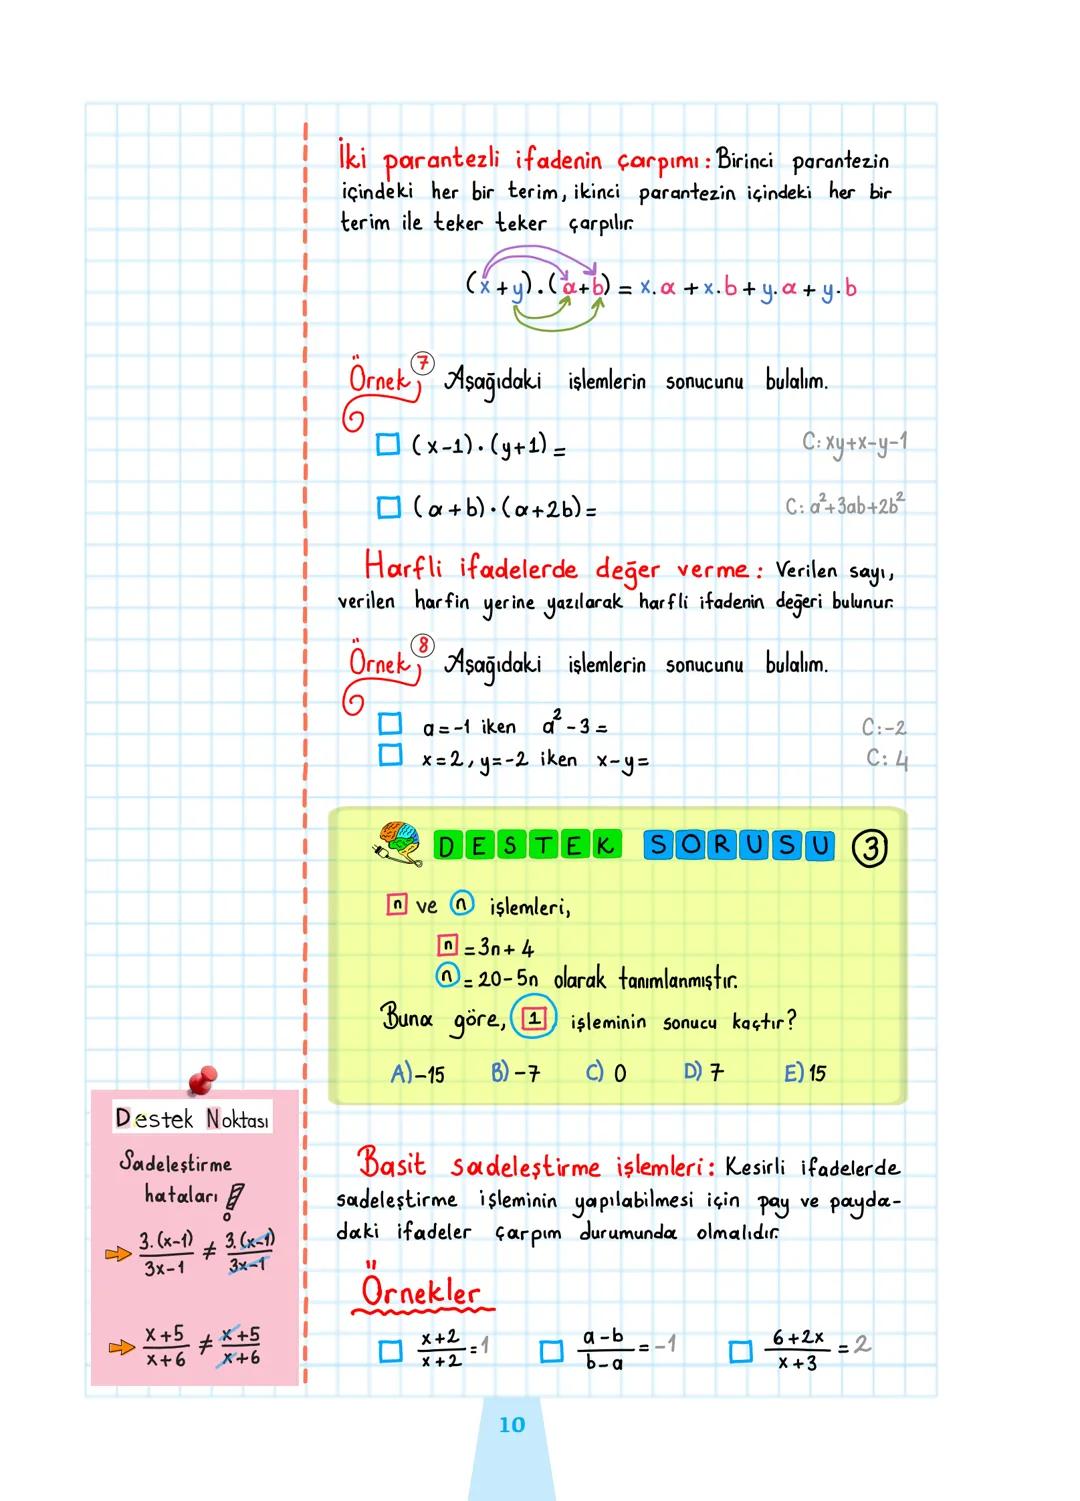 İki parantezli ifadenin çarpımı: Birinci parantezin
içindeki her bir terim, ikinci parantezin içindeki her bir
terim ile teker teker çarpılır.
(x+y).(a+b) = x.a + x.b + y.a + y.b
Örnek 7 Aşağıdaki işlemlerin sonucunu bulalım.
(x-1).(y+1) = C: xy+x-y-1
(a+b).(a+2b)= C: a²+3ab+2b²
Harfli ifadelerde değer verme: Verilen sayı,
verilen harfin yerine yazılarak harfli ifadenin değeri bulunur.
Örnek 8 Aşağıdaki işlemlerin sonucunu bulalım.
a=-1 iken a²-3= C:-2
x=2, y=-2 iken x-y= C: 4
DESTEK SORUSU 3
n ve n işlemleri,
n = 3n+4
n = 20-5n olarak tanımlanmıştır.
Buna göre, 1 işleminin sonucu kaçtır?
A)-15 B)-7 C) 0 D) 7 E) 15
Destek Noktası
Sadeleştirme
hataları!
3.(x-1)/3x-1 ≠ 3.(x-1)/3x-1
x+5/x+6 ≠ x+5/x+6
Basit sadeleştirme işlemleri: Kesirli ifadelerde
sadeleştirme işleminin yapılabilmesi için pay ve payda-
daki ifadeler çarpım durumunda olmalıdır.
Örnekler
x+2/x+2 =1 a-b/b-a =-1 6+2x/x+3 =2
10